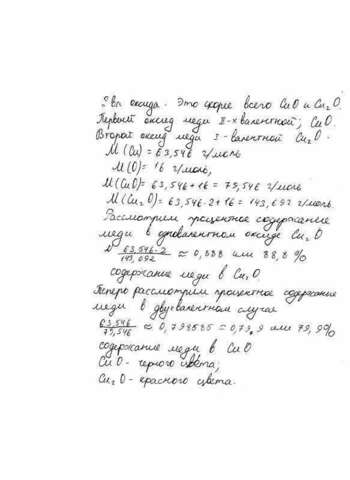 Два оксида. Это скорее всего CuO и Cu₂O.
Первый оксид меди II-х валентной; CuO.
Второй оксид меди I-валентной Cu₂O.
M(Cu) = 63,546 г/моль
M(O) = 16 г/моль,
M(CuO) = 63,546+16 = 79,546 г/моль
M(Cu₂O) = 63,546·2+16 = 143,092 г/моль.
Рассмотрим процентное содержание
меди в одновалентном оксиде Cu₂O
63,546·2 / 143,092 ≈ 0,888 или 88,8%
содержание меди в Cu₂O.
Теперь рассмотрим процентное содержание
меди в двухвалентном случае
63,546 / 79,546 ≈ 0,798585 = 0,79,9 или 79,9%
содержание меди в CuO
CuO - черного цвета;
Cu₂O - красного цвета.